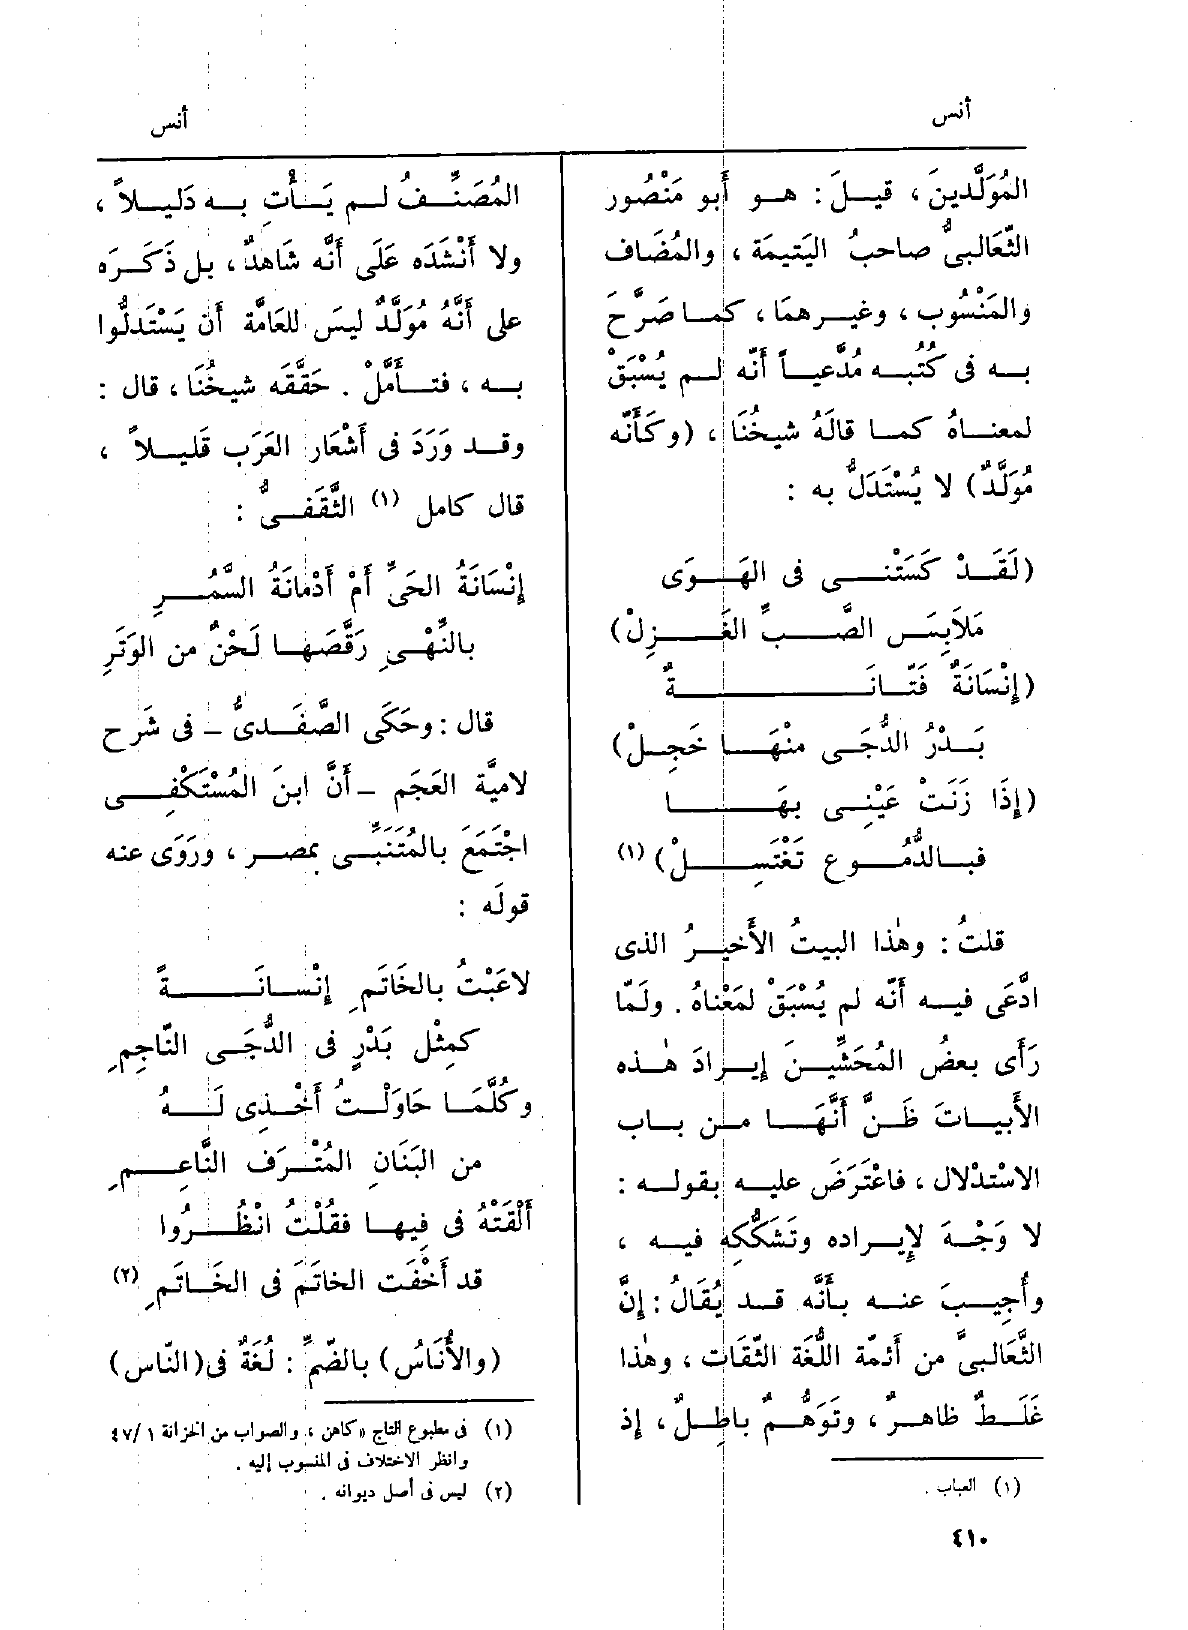 أنس
أنس
المُوَلَّدينَ ، قيلَ : هــو أَبو مَنْصُور
الثَّعَالبىُّ صاحبُ اليَتيمَة ، والمُضَاف
والمَنْسُوب ، وغيــرهمَا ، كمــا صَرَّح
بــه فى كُتُبــه مُدَّعيــاً أَنَّه لــم يُسْبَقْ
لمعنــاهُ كمــا قالَهُ شيخُنَا ، (وكَأَنَّه
مُوَلَّدٌ) لا يُسْتَدَلُّ به :
(لَقَــدْ كَسَتْنــى فى الهَــوَى
مَلاَبِسَ الصَّــبِّ الغَــزِلْ)
(إنْسَانَةٌ فَتَّــانَــةٌ
بَــدْرُ الدُّجَــى منْهَــا خَجِــلْ)
(إذَا زَنَتْ عَيْنــى بهَــا
فبــالدُّمُــوع تَغْتَسِــلْ) (١)
قلتُ : وهٰذا البيتُ الأَخيــرُ الذى
ادَّعَى فيــه أَنَّه لم يُسْبَقْ لمَعْناهُ . ولَمَّا
رَأَى بعضُ المُحَشِّيــنَ إيــرادَ هٰــذه
الأَبيــاتَ ظَــنَّ أَنَّهَــا مــن بــاب
الاسْتدْلال ، فاعْتَرَضَ عليــه بقولــه :
لا وَجْــهَ لإِيــراده وتَشَكُّكِه فيــه ،
وأُجيــبَ عنــه بأَنَّه قــد يُقَالُ : إنَّ
الثَّعَالبىَّ من أَئمَّة اللُّغَة الثِّقَات ، وهٰذا
غَلَــطٌ ظاهــرٌ ، وتَوَهُّــمٌ باطِــلٌ ، إذ
(١) العباب .
المُصَنِّــفُ لــم يَــأْت بــه دَليــلاً ،
ولا أَنْشَدَه عَلَى أَنَّه شاهدٌ ، بل ذَكَــرَه
على أَنَّهُ مُوَلَّدٌ ليس للعَامَّة أَن يَسْتَدلُّوا
بــه ، فتــأَمَّلْ . حَقَّقَه شيخُنَا ، قال :
وقــد وَرَدَ فى أَشْعَار العَرَب قَليــلاً ،
قال كامل (١) الثَّقَفــىُّ :
إنْسَانَةُ الحَىِّ أَمْ أَدْمَانَةُ السَّمُــرِ
بالنِّهْىِ رَقَّصَهــا لَحْنٌ من الوَتَرِ
قال : وحَكَى الصَّفَــدىُّ – فى شَرح
لاميَّة العَجَم – أَنَّ ابنَ المُسْتَكْفِــى
اجْتَمَعَ بالمُتَنَبِّــى بمصــر ، ورَوَى عنه
قولَه :
لاعَبْتُ بالخَاتَمِ إنْســانَــةً
كمِثْل بَدْرٍ فى الدُّجَــى النَّاجِمِ
وكُلَّمَــا حَاوَلْــتُ أَخْــذِى لَــهُ
من البَنَانِ المُتْــرَف النَّاعِــمِ
أَلْقَتْهُ فى فِيهــا فقُلْــتُ انْظُــرُوا
قد أَخْفَت الخاتَمَ فى الخَــاتَمِ (٢)
(والأُنَاسُ) بالضَّمِّ : لُغَةٌ فى (النَّاس)
(١) فى مطبوع التاج «كاهن» ، والصواب من الخزانة ١/٤٧
وانظر الاختلاف فى المنسوب إليه .
(٢) ليس فى أصل ديوانه .
٤١٠